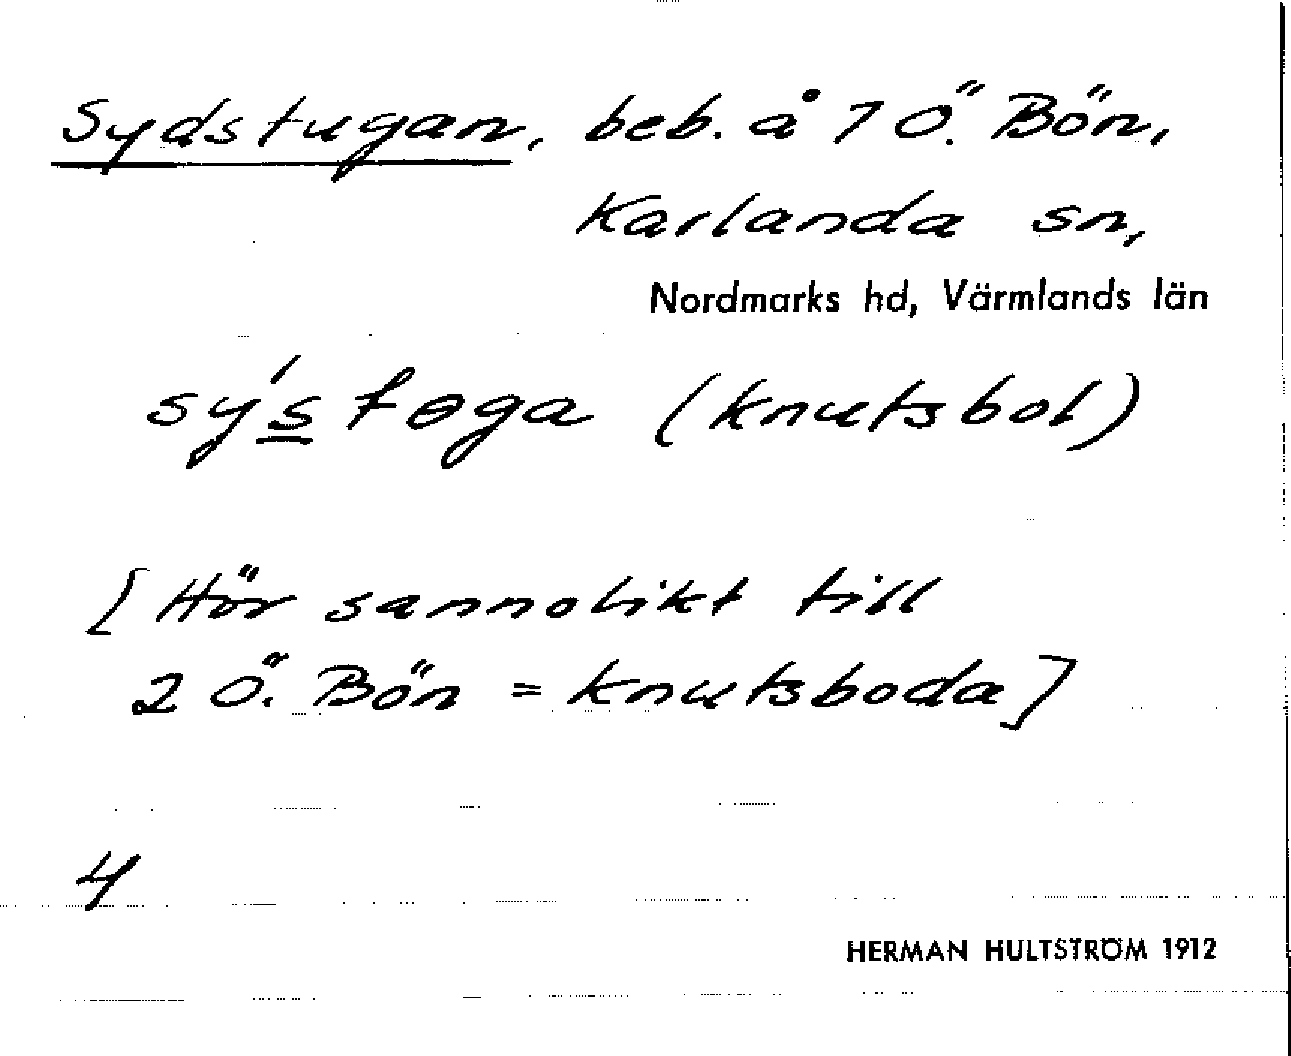 Sydstugan, beb. å 1 Ö. Bön,
Karlanda sn,
Nordmarks hd, Värmlands län
sýstɵga (knutsbol)
[Hör sannolikt till
2 Ö. Bön = Knutsboda]
4
HERMAN HULTSTRÖM 1912